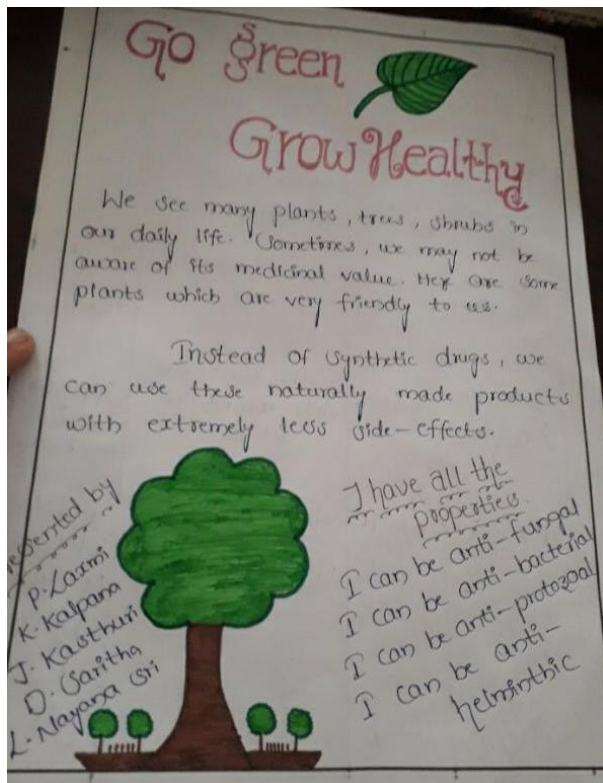 Go green
Grow Healthy
We see many plants, trees, shrubs in
our daily life. Sometimes, we may not be
aware of its medicinal value. Here are some
plants which are very friendly to us.
Instead of synthetic drugs, we
can use these naturally made products
with extremely less side-effects.
resented by
P. Laxmi
K. Kalpana
J. Kasthuri
D. Saritha
L. Nayana Sri
I have all the
properties.
I can be anti-fungal
I can be anti-bacterial
I can be anti-protozoal
I can be anti-
helminthic